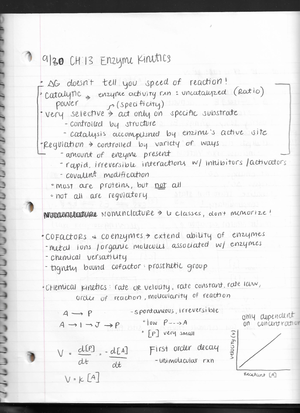 9/30 CH 13 Enzyme Kinetics
• ΔG doesn't tell you speed of reaction!
• Catalytic power → enzyme activity rxn : uncatalyzed (Ratio)
(specificity)
• Very selective → act only on specific substrate
- controlled by structure
- catalysis accomplished by enzyme's active site
• Regulation → controlled by variety of ways
- amount of enzyme present
- rapid, irreversible interactions w/ inhibitors/activators
- covalent modification
- most are proteins, but not all
- not all are regulatory
Nomenclature → 6 classes, don't memorize!
• COFACTORS → coenzymes → extend ability of enzymes
- metal ions / organic molecules associated w/ enzymes
- chemical versatility
- tightly bound cofactor - prosthetic group
• Chemical kinetics: rate or velocity, rate constant, rate law,
order of reaction, molecularity of reaction
A → P
- spontaneous, irreversible
A → I → J → P
- low P ---> A
- [P] very small
V = d[P]/dt = -d[A]/dt
First order decay
- unimolecular rxn
V = k [A]
only dependent
on concentration
velocity (v)
Reactant [A]